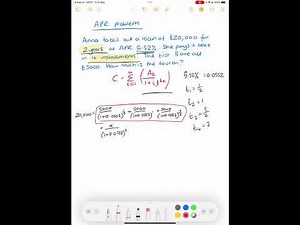 APR problem
Anna takes out a loan of £20,000 for
2 years at APR 5.52%. She pays it back
in 4 instalments. The first 3 are all
£5000. How much is the fourth?
C = Σ ( Ak / (1+i)^tk )
5.52% 0.0552
t₁ = 1/2
t₂ = 1
t₃ = 3/2
t₄ = 2
20,000 = 5000/(1+0.0552)^½ + 5000/(1+0.0552)¹ + 5000/(1+0.0552)^3/2
+ x/(1+0.0552)²